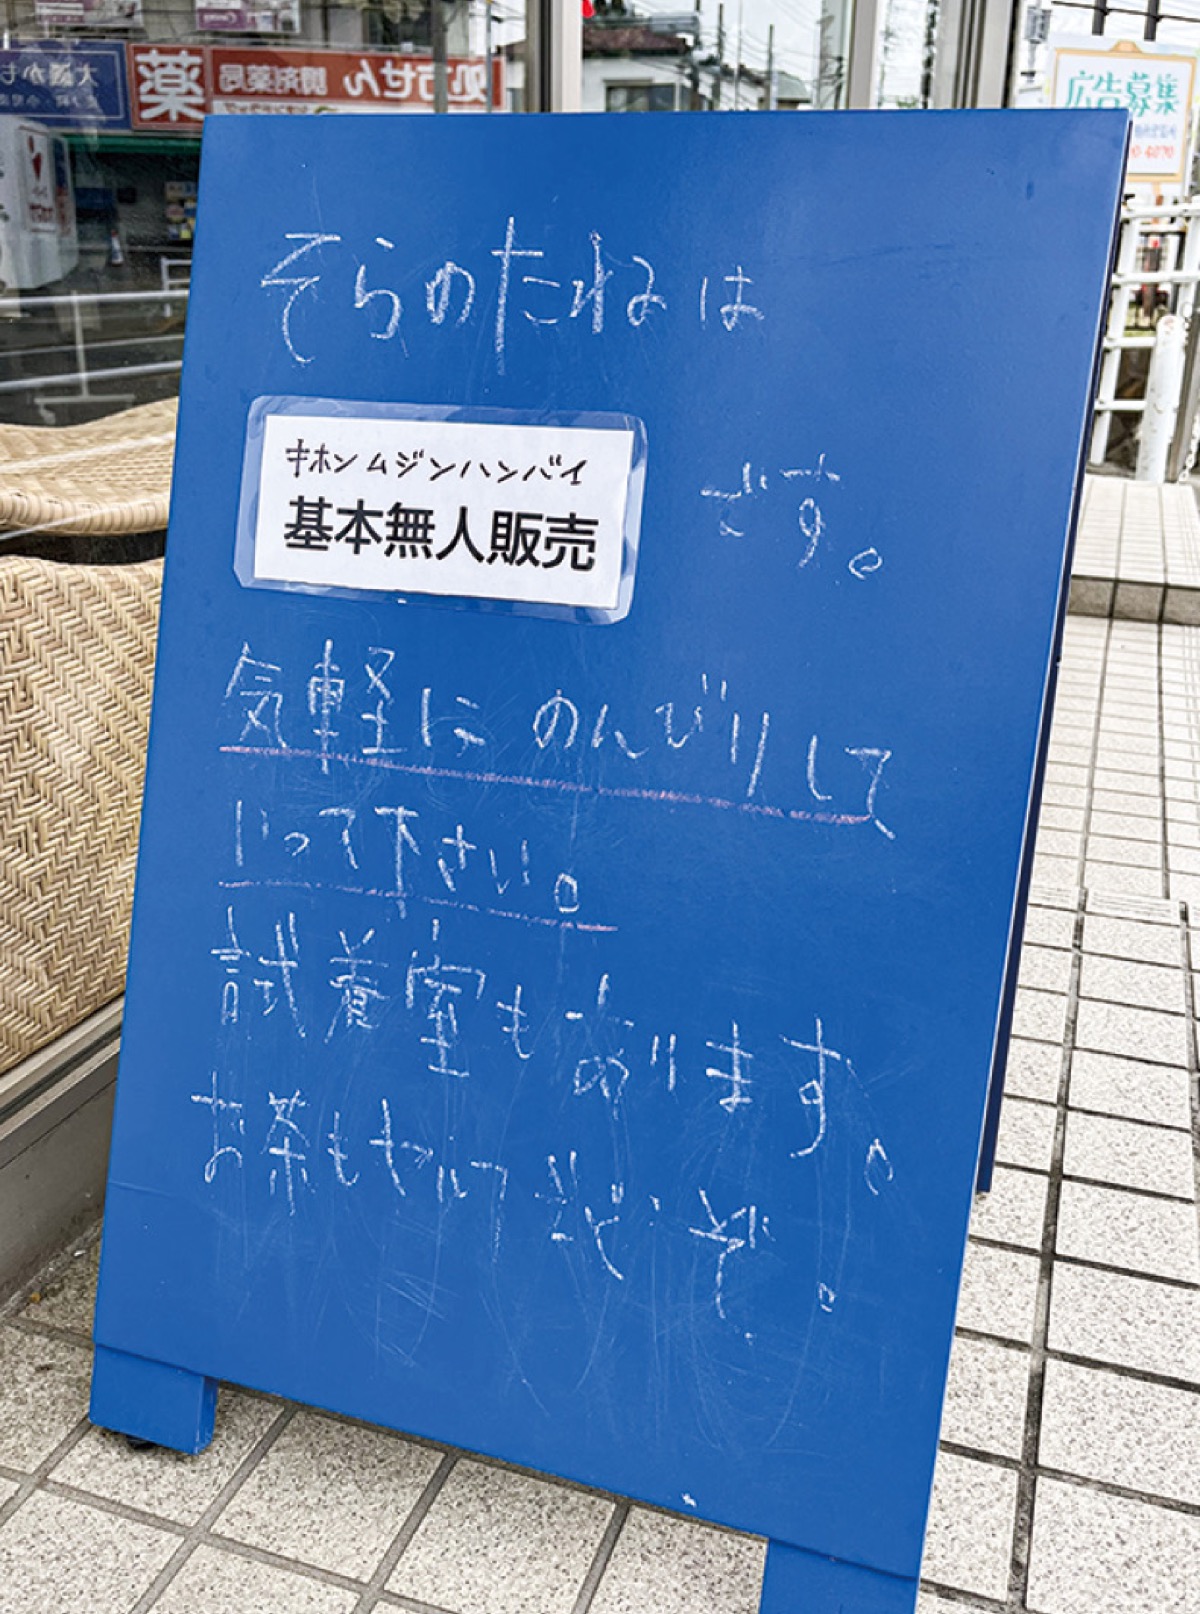 処方せん 調剤薬局
薬
広告募集
そらのたねは
キホンムジンハンバイ
基本無人販売
です。
気軽にのんびりして
いって下さい。
試着室もあります。
お茶もセルフでどうぞ。